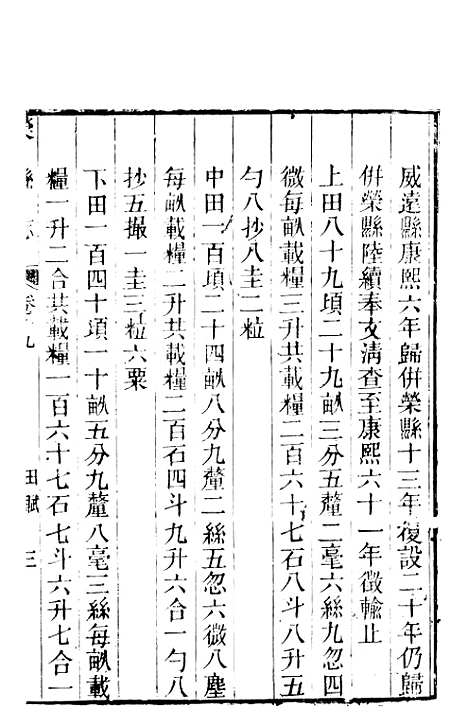 威遠縣康熙六年歸併榮縣十三年復設二十年仍歸
併榮縣陸續奉文清查至康熙六十一年徵輸止
上田八十九頃二十九畝三分五釐二毫六絲九忽四
微每畝載糧三升共載糧二百六十七石八斗八升五
勺八抄八圭二粒
中田一百頃二十四畝八分九釐二絲五忽六微八塵
每畝載糧二升共載糧二百石四斗九升六合一勺八
抄五撮一圭三粒六粟
下田一百四十頃一十畝五分九釐八毫三絲每畝載
糧一升二合共載糧一百六十七石七斗六升七合一
縣志 卷之九 田賦 三